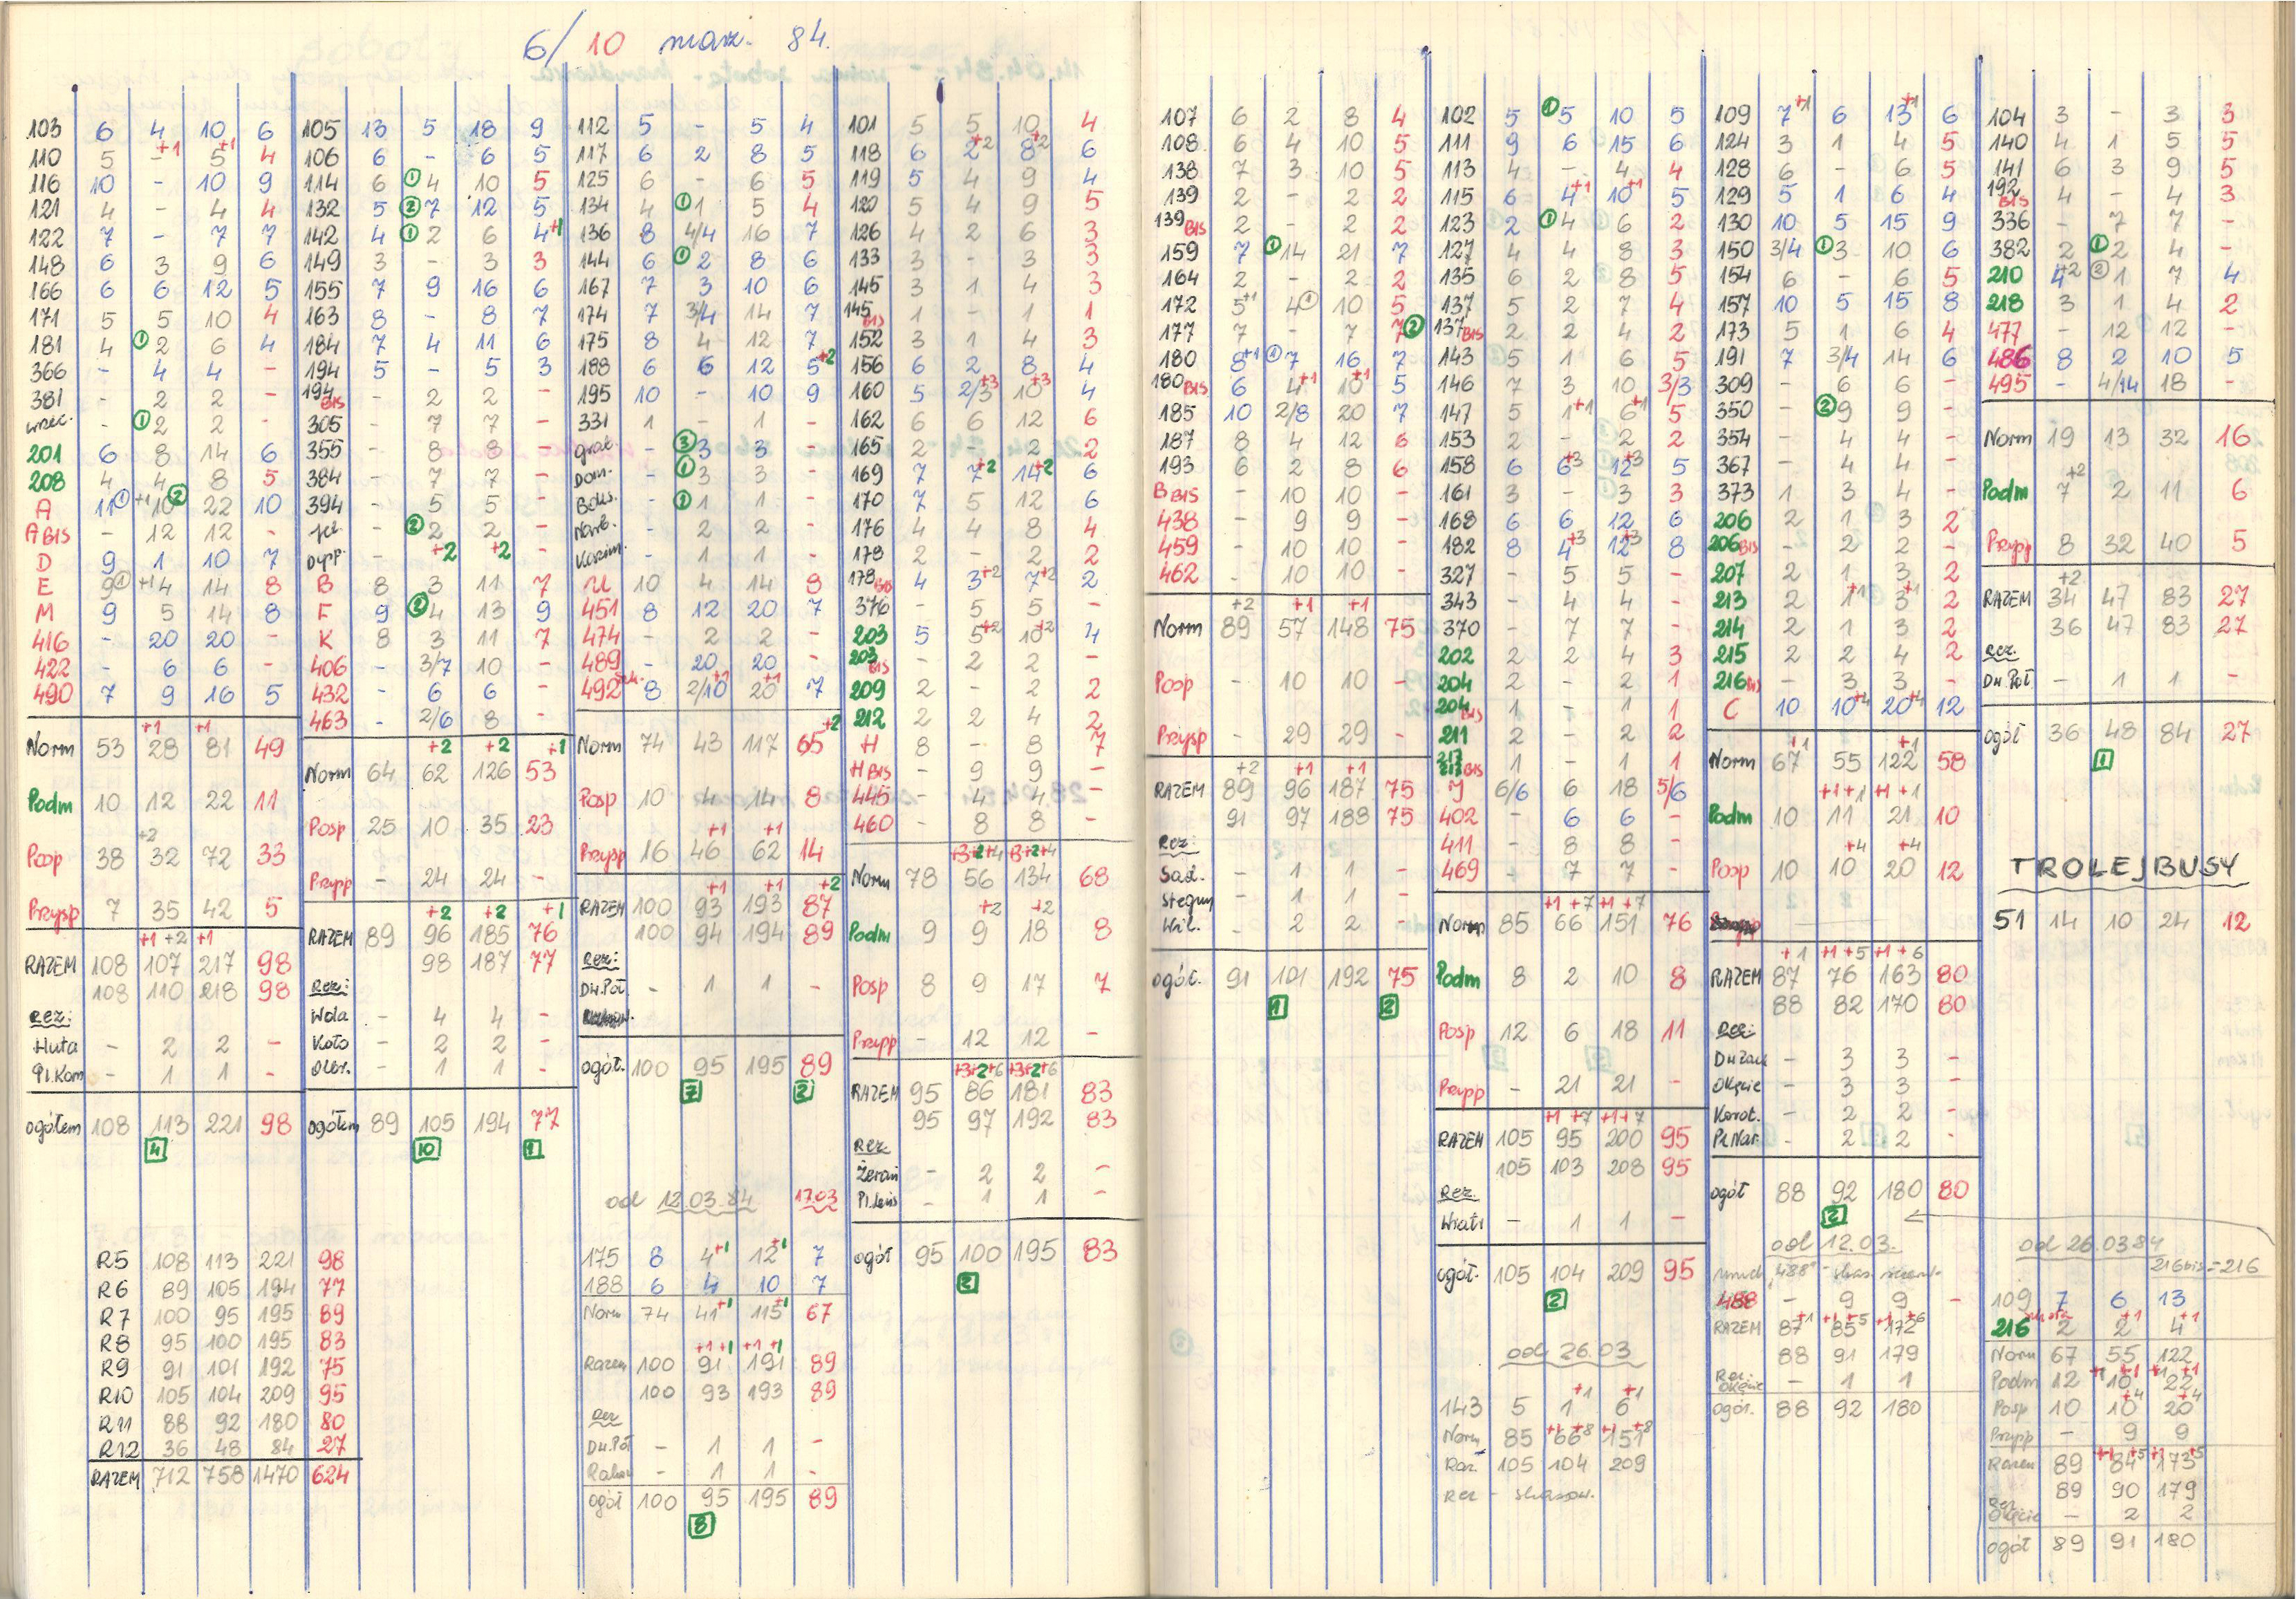 6/10 marz. 84.
103 6 4 10 6
110 5 - +1 5 +1 4
116 10 - 10 9
121 4 - 4 4
122 7 - 7 7
148 6 3 9 6
166 6 6 12 5
171 5 5 10 4
181 4 ① 2 6 4
366 - 4 4 -
381 - 2 2 -
- ① 2 2 -
201 6 8 14 6
208 4 4 8 5
A 11 ① +1 10 ② 22 10
A BIS - 12 12 -
D 9 1 10 7
E 9 ① +1 4 14 8
M 9 5 14 8
416 - 20 20 -
422 - 6 6 -
490 7 9 16 5
+1 +1
Norm 53 28 81 49
Podm 10 12 22 11
+2
Posp 38 32 72 33
Przysp 7 35 42 5
+1 +2 +1
RAZEM 108 107 217 98
108 110 218 98
Rez:
Huta - 2 2 -
Pl.Kom - 1 1 -
ogółem 108 113 221 98
4
R5 108 113 221 98
R6 89 105 194 77
R7 100 95 195 89
R8 95 100 195 83
R9 91 101 192 75
R10 105 104 209 95
R11 88 92 180 80
R12 36 48 84 27
RAZEM 712 758 1470 624
105 13 5 18 9
106 6 - 6 5
114 6 ① 4 10 5
132 5 ② 7 12 5
142 4 ① 2 6 4 +1
149 3 - 3 3
155 7 9 16 6
163 8 - 8 7
184 7 4 11 6
194 5 - 5 3
194 BIS - 2 2 -
305 - 7 7 -
355 - 8 8 -
384 - 7 7 -
394 - 5 5 -
- ② 2 2 -
- +2 +2 -
B 8 3 11 7
F 9 ② 4 13 9
K 8 3 11 7
406 - 3/7 10 -
432 - 6 6 -
463 - 2/6 8 -
+2 +2 +1
Norm 64 62 126 53
Posp 25 10 35 23
Przysp - 24 24 -
+2 +2 +1
RAZEM 89 96 185 76
98 187 77
Rez:
Wola - 4 4 -
Koło - 2 2 -
- 1 1 -
ogółem 89 105 194 77
10 1
112 5 - 5 4
117 6 2 8 5
125 6 - 6 5
134 4 ① 1 5 4
136 8 4/4 16 7
144 6 ① 2 8 6
167 7 3 10 6
174 7 3/4 14 7
175 8 4 12 7
188 6 6 12 5 +2
195 10 - 10 9
331 1 - 1 -
- ③ 3 3 -
Dom. - ① 3 3 -
- ① 1 1 -
- 2 2 -
- 1 1 -
U 10 4 14 8
451 8 12 20 7
474 - 2 2 -
489 - 20 20 -
492 8 2/10 +1 20 +1 7
+2
Norm 74 43 117 65
Posp 10 4 14 8
+1 +1
Przysp 16 46 62 14
+1 +1 +2
RAZEM 100 93 193 87
100 94 194 89
Rez:
Dw.Poł. - 1 1 -
ogół. 100 95 195 89
7 2
od 12.03.84 17.03
175 8 4 +1 12 +1 7
188 6 4 10 7
Norm 74 41 +1 115 +1 67
+1 +1 +1 +1
Razem 100 91 191 89
100 93 193 89
Rez
Dw.Poł - 1 1 -
- 1 1 -
ogół 100 95 195 89
8
101 5 5 10 4
118 6 2 +2 8 +2 6
119 5 4 9 4
120 5 4 9 5
126 4 2 6 3
133 3 - 3 3
145 3 1 4 3
145 BIS 1 - 1 1
152 3 1 4 3
156 6 2 8 4
160 5 2/3 +3 10 +3 4
162 6 6 12 6
165 2 - 2 2
169 7 7 +2 14 +2 6
170 7 5 12 6
176 4 4 8 4
178 2 - 2 2
178 BIS 4 3 +2 7 +2 2
376 - 5 5 -
203 5 5 +2 10 +2 4
203 BIS - 2 2 -
209 2 - 2 2
212 2 2 4 2
H 8 - 8 7
H BIS - 9 9 -
445 - 4 4 -
460 - 8 8 -
+3+2+4 +3+2+4
Norm 78 56 134 68
+2 +2
Podm 9 9 18 8
Posp 8 9 17 7
Przysp - 12 12 -
+3+2+6 +3+2+6
RAZEM 95 86 181 83
95 97 192 83
Rez
Żerań - 2 2 -
- 1 1 -
ogół 95 100 195 83
2
107 6 2 8 4
108 6 4 10 5
138 7 3 10 5
139 2 - 2 2
139 BIS 2 - 2 2
159 7 ① 14 21 7
164 2 - 2 2
172 5 +1 4 ① 10 5
177 7 - 7 7 ②
180 8 +1 ① 7 16 7
180 BIS 6 4 +1 10 +1 5
185 10 2/8 20 7
187 8 4 12 6
193 6 2 8 6
B BIS - 10 10 -
438 - 9 9 -
459 - 10 10 -
462 - 10 10 -
+2 +1 +1
Norm 89 57 148 75
Posp - 10 10 -
Przysp - 29 29 -
+2 +1 +1
RAZEM 89 96 187 75
91 97 188 75
Rez:
Sad. - 1 1 -
Stegny - 1 1 -
Wil. - 2 2 -
ogół. 91 101 192 75
1 2
102 5 ① 5 10 5
111 9 6 15 6
113 4 - 4 4
115 6 4 +1 10 +1 5
123 2 ① 4 6 2
127 4 4 8 3
135 6 2 8 5
137 5 2 7 4
137 BIS 2 2 4 2
143 5 1 6 5
146 7 3 10 3/3
147 5 1 +1 6 +1 5
153 2 - 2 2
158 6 6 +3 12 +3 5
161 3 - 3 3
168 6 6 12 6
182 8 4 +3 12 +3 8
327 - 5 5 -
343 - 4 4 -
370 - 7 7 -
202 2 2 4 3
204 2 - 2 1
204 BIS 1 - 1 1
211 2 - 2 2
217 BIS 1 - 1 1
J 6/6 6 18 5/6
402 - 6 6 -
411 - 8 8 -
469 - 7 7 -
+1 +7 +1 +7
Norm 85 66 151 76
Podm 8 2 10 8
Posp 12 6 18 11
Przysp - 21 21 -
+1 +7 +1 +7
RAZEM 105 95 200 95
105 103 208 95
Rez.
- 1 1 -
ogół. 105 104 209 95
2
od 26.03
+1 +1
143 5 1 6
Norm 85 66 +1 +8 151 +1 +8
Raz. 105 104 209
rez - skasow.
109 7 +1 6 13 +1 6
124 3 1 4 5
128 6 - 6 5
129 5 1 6 4
130 10 5 15 9
150 3/4 ① 3 10 6
154 6 - 6 5
157 10 5 15 8
173 5 1 6 4
191 7 3/4 14 6
309 - 6 6 -
350 - ② 9 9 -
354 - 4 4 -
367 - 4 4 -
373 1 3 4 -
206 2 1 3 2
206 BIS - 2 2 -
207 2 1 3 2
213 2 1 +1 3 +1 2
214 2 1 3 2
215 2 2 4 2
216 BIS - 3 3 -
C 10 10 +4 20 +4 12
+1 +1
Norm 67 55 122 58
+1+1 +1 +1
Podm 10 11 21 10
+4 +4
Posp 10 10 20 12
+1 +1 +5 +1 +6
RAZEM 87 76 163 80
88 82 170 80
Rez:
- 3 3 -
Okęcie - 3 3 -
Korot. - 2 2 -
Pl.Nar. - 2 2 -
ogół 88 92 180 80
2
od 12.03.
488 - 9 9 -
RAZEM 87 +1 85 +1 +5 172 +1 +6
88 91 179
Rez:
Okęcie - 1 1
ogół. 88 92 180
104 3 - 3 3
140 4 1 5 5
141 6 3 9 5
192 BIS 4 - 4 3
336 - 7 7 -
382 2 ① 2 4 -
210 4 +2 ② 1 7 4
218 3 1 4 2
477 - 12 12 -
486 8 2 10 5
495 - 4/14 18 -
Norm 19 13 32 16
+2
Podm 7 2 11 6
Przysp 8 32 40 5
+2
RAZEM 34 47 83 27
36 47 83 27
Rez.
Dw.Poł. - 1 1 -
ogół 36 48 84 27
1
TROLEJBUSY
51 14 10 24 12
od 26.03.84
216bis = 216
109 7 6 13
216 2 2 +1 4 +1
Norm 67 55 122
Podm 12 10 +1 +1 22 +1 +1
Posp 10 10 +4 20 +4
Przysp - 9 9
Razem 89 84 +1 +5 173 +1 +5
89 90 179
Rez
Okęcie - 2 2
ogół 89 91 180